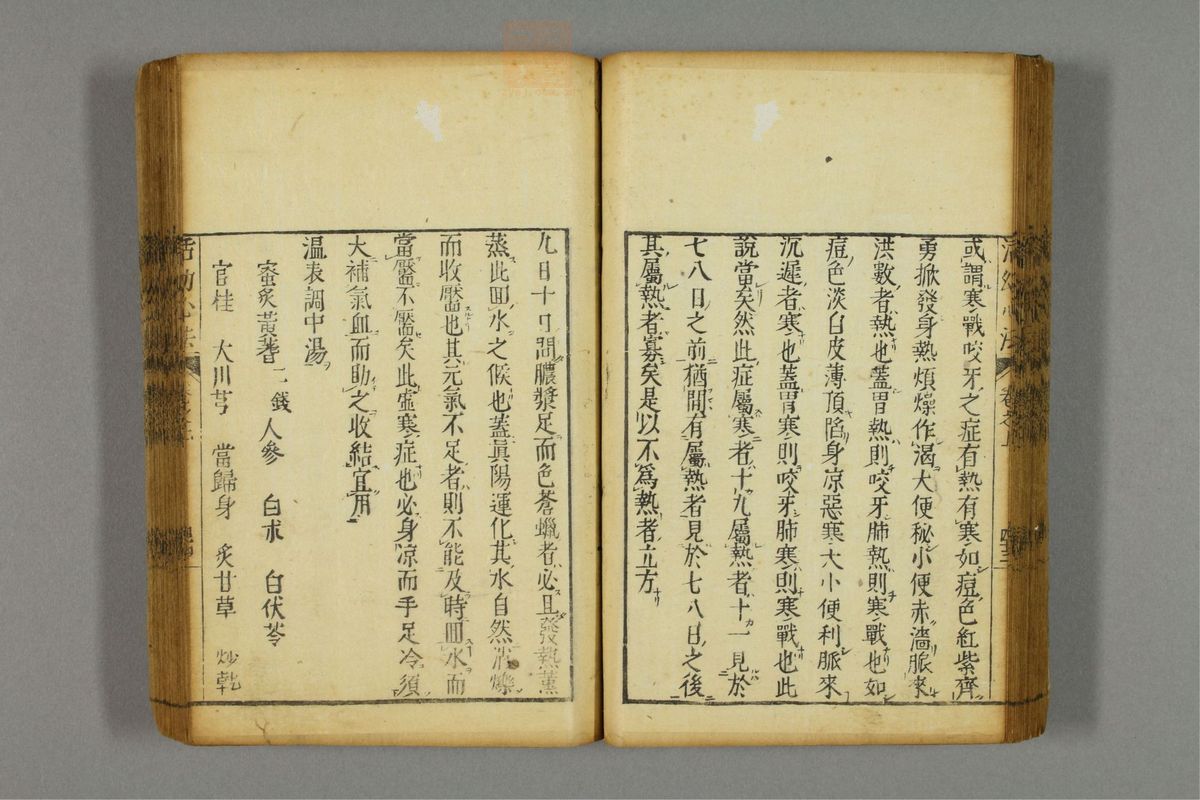 或謂寒戰咬牙之症有熱有寒如痘色紅紫齊
勇掀發身熱煩燥作渴大便秘小便赤濇脈來
洪數者熱也蓋胃熱則咬牙肺熱則寒戰也如
痘色淡白皮薄頂陷身凉惡寒大小便利脈來
沉遲者寒也蓋胃寒則咬牙肺寒則寒戰也此
說當矣然此症屬寒者十九屬熱者十一見於
七八日之前猶間有屬熱者見於七八日之後
其屬熱者寡矣是以不爲熱者立方
九日十日間膿漿足而色蒼蠟者必且發熱薰
蒸此回水之候也蓋眞陽運化其水自然消爍
而收靨也其元氣不足者則不能及時回水而
當靨不靨矣此虛寒症也必身凉而手足冷須
大補氣血而助之收結宜用
温表調中湯
蜜炙黃蓍二錢 人參 白朮 白伏苓
官桂 大川芎 當歸身 炙甘草 炒乾
活幼心法